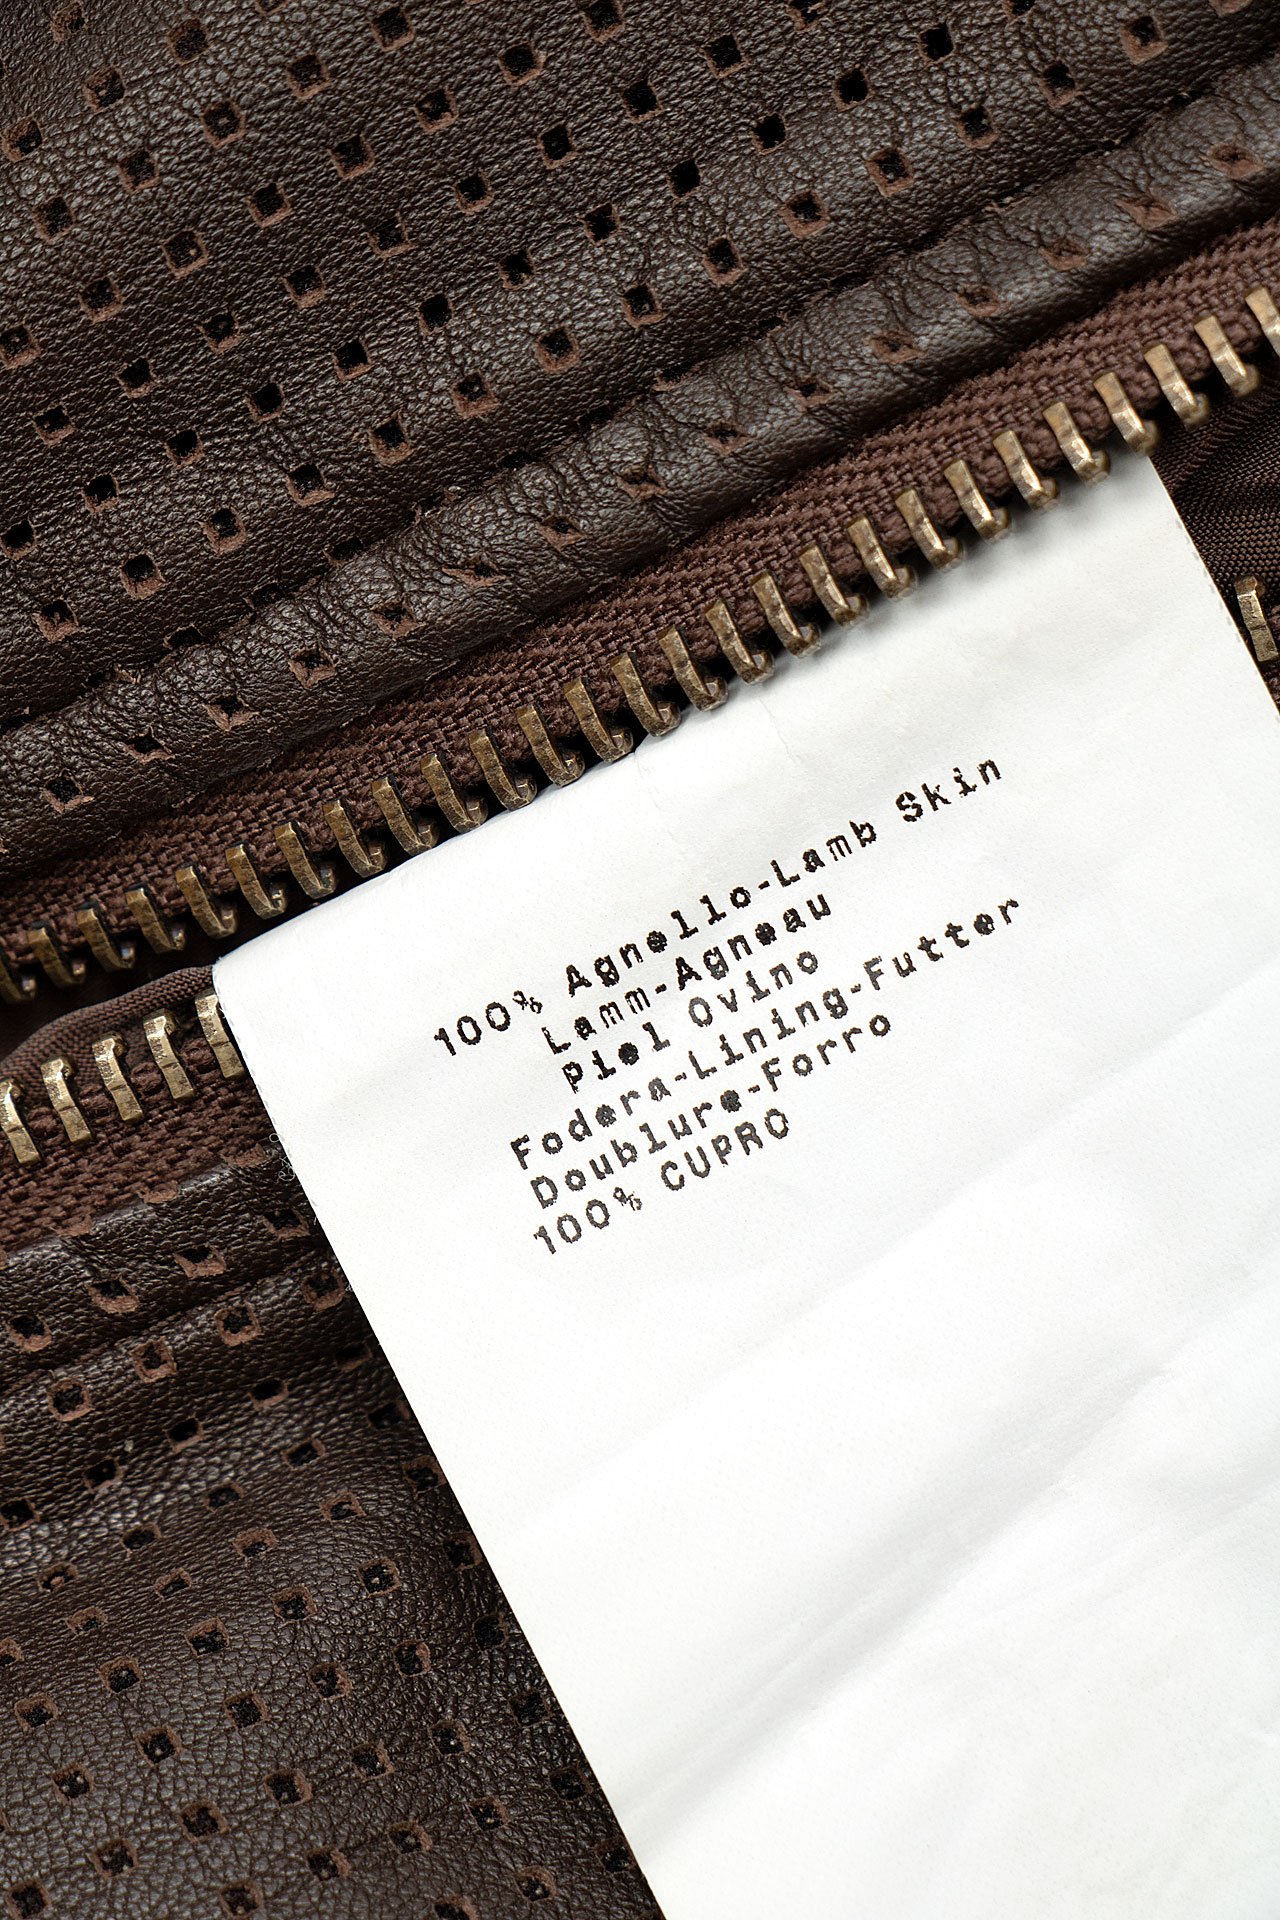 100% Agnello-Lamb Skin
Lamm-Agneau
Piel Ovino
Fodera-Lining-Futter
Doublure-Forro
100% CUPRO